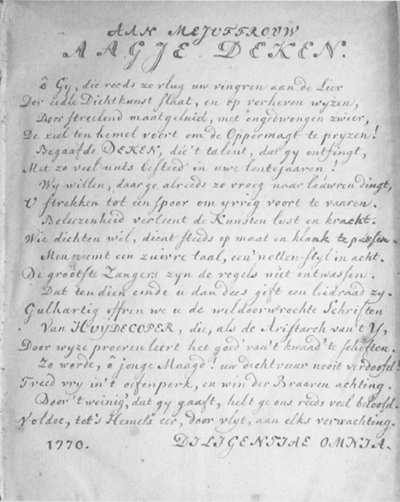 AAN MEJUFFROUW
AAGJE DEKEN.
ô Gij, die reeds zo vlug uw vingren aan de Lier
Der eedle Dichtkunst slaat, en op verheven wyzen,
Door streelend maatgeluid, met ongedwongen zwier,
De ziel ten hemel voert om de Oppermagt te pryzen!
Begaafde DEKEN, die't talent, dat gy ontfingt,
Met zo veel nuts besteed in uwe lentejaaren!
Wy willen, daar ge alreeds zo vroeg naar lauwren dingt,
U strekken tot een spoor om yvrig voort te vaaren.
Beleezenheid verleent de Kunsten lust en kracht.
Wie dichten wil, dient steeds op maat en klank te passen.
Men neemt een zuivre taal, een' netten styl in acht.
De grootste Zangers zyn de regels niet ontwassen.
Dat ten dien einde u dan dees gift een leidraad zy.
Gulhartig offren we u de weldoorwrochte Schriften
Van HUYDECOPER, die, als de Aristarch van't Y,
Door wyze proeven leert het goed van't kwaad te schiften.
Zo worde, ô jonge Maagd! uw dichtvuur nooit verdoofd!
Treed vry in't oefenperk, en win der Braaven achting.
Door't weinig, dat gy gaaft, hebt ge ons reeds veel beloofd.
Voldoe, tot's Hemels eer, door vlyt, aan elks verwachting.
1770. DILIGENTIAE OMNIA.